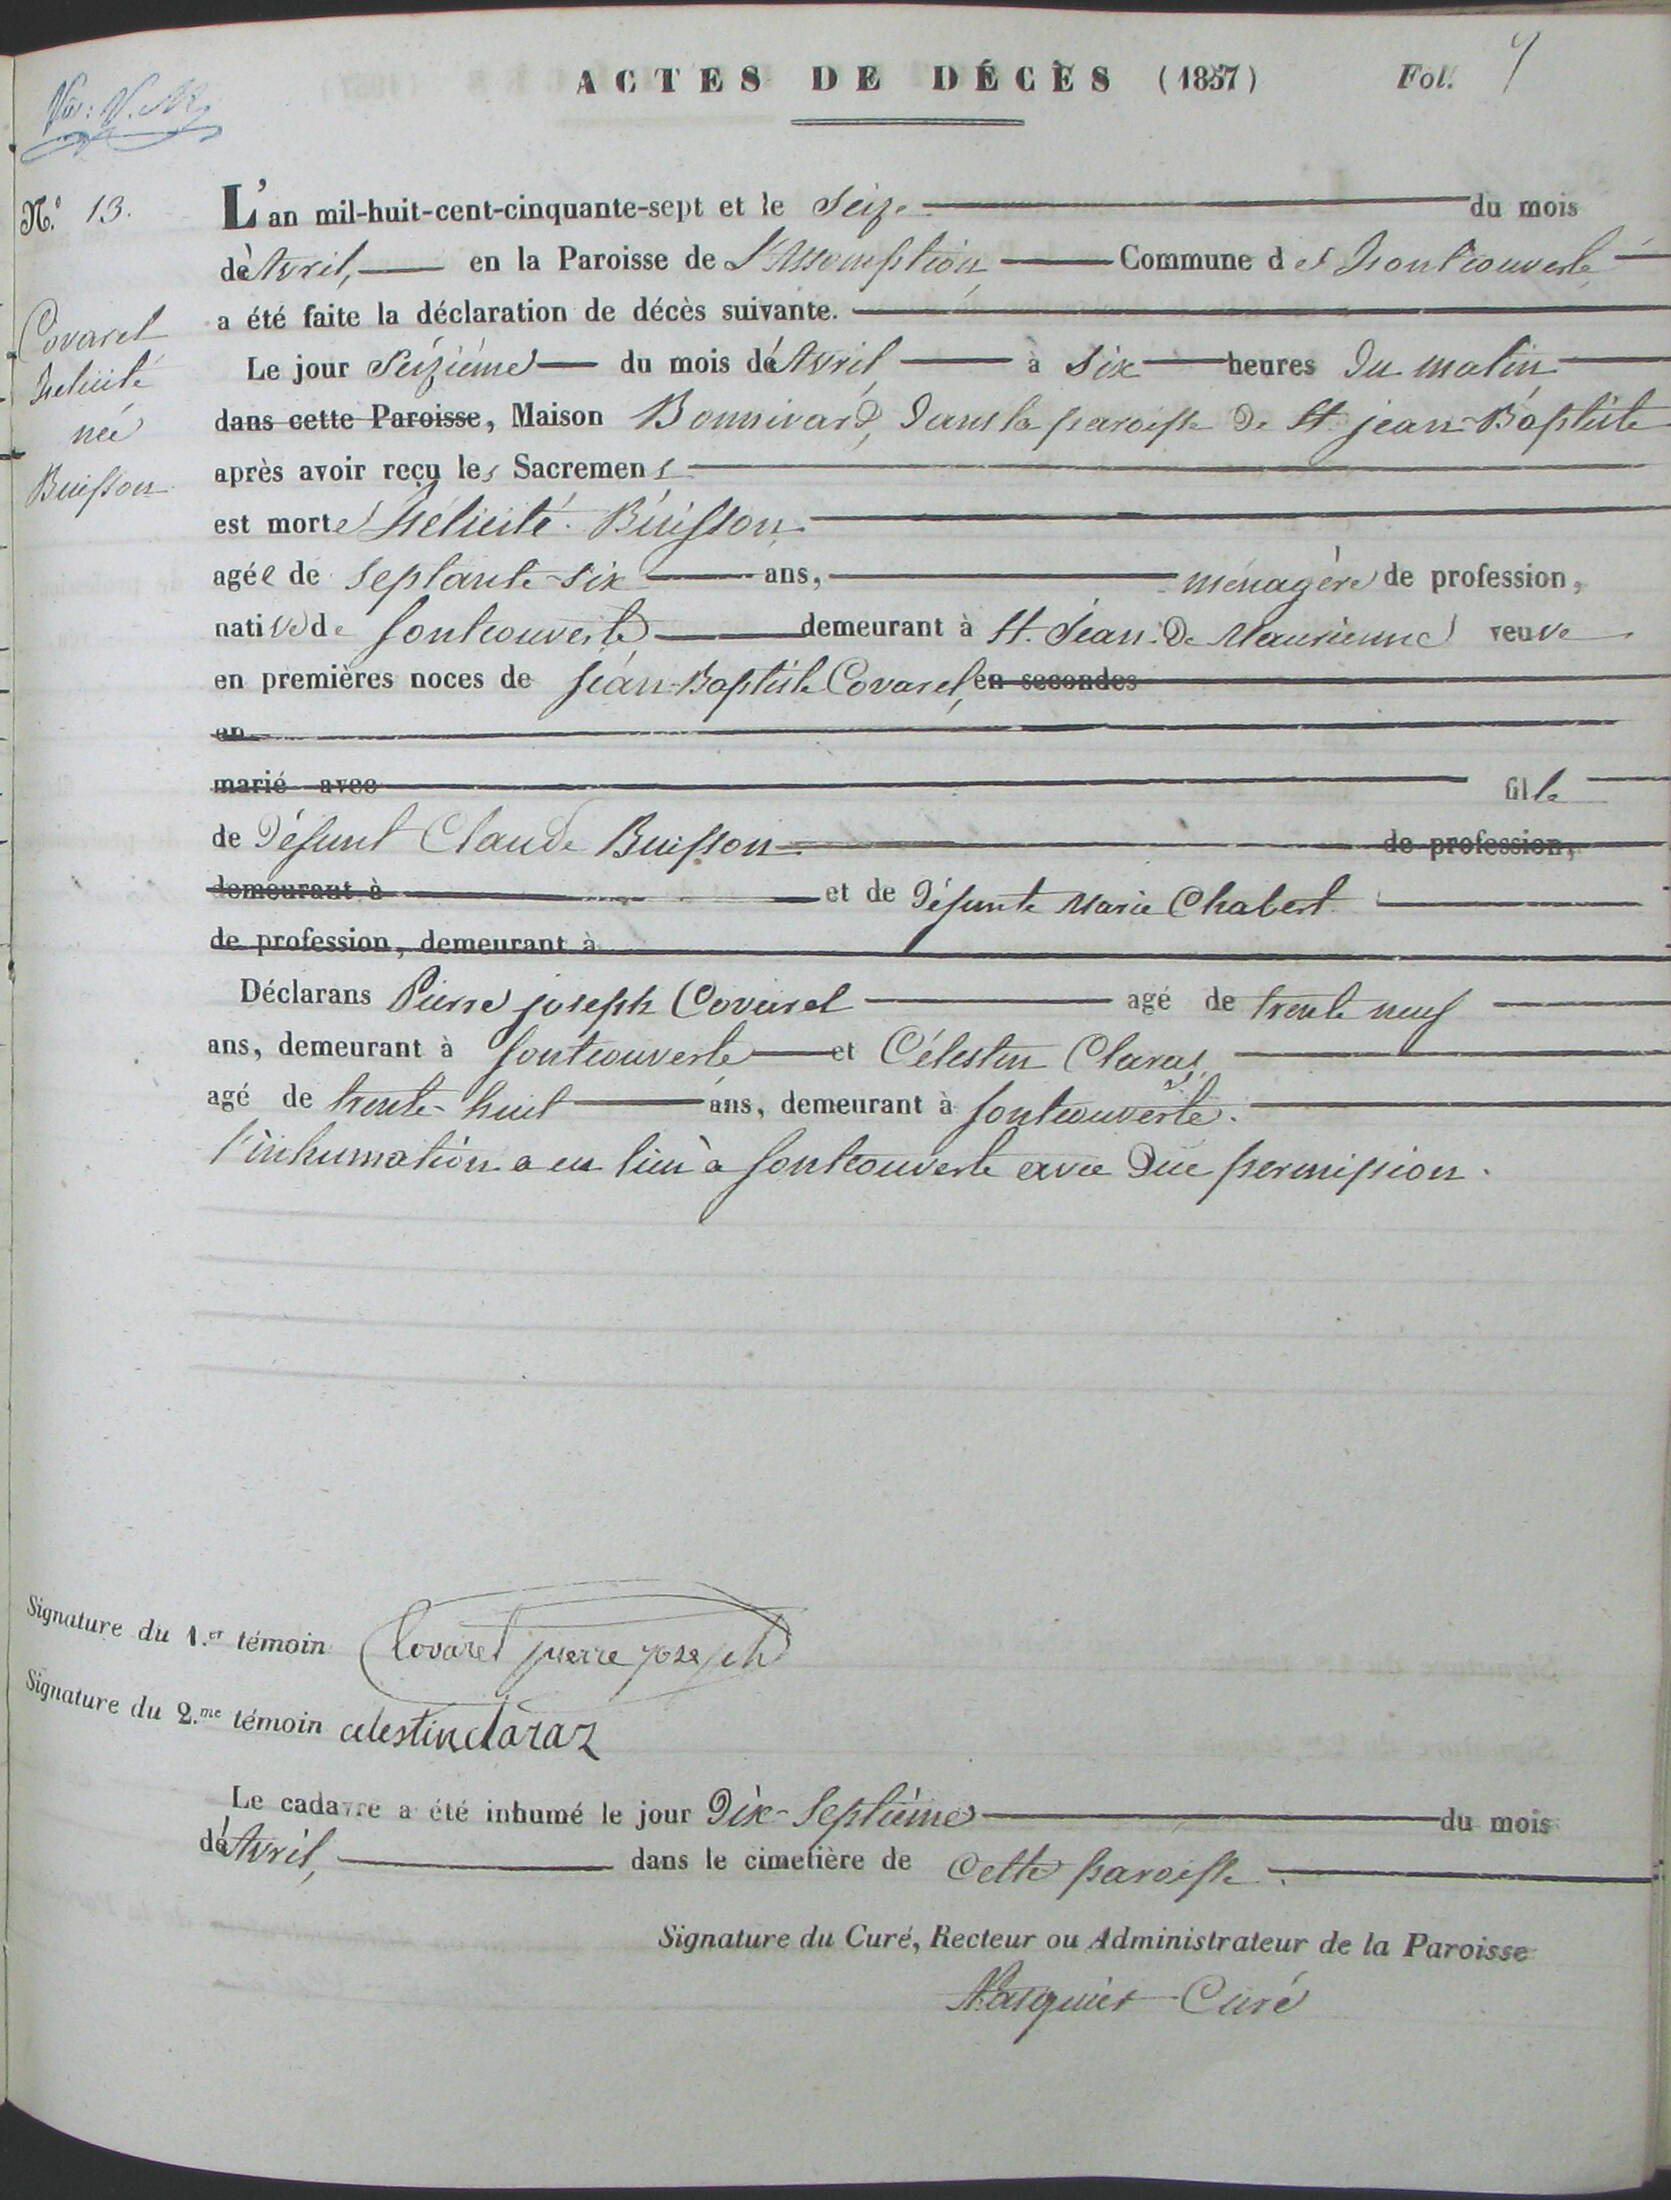 ACTES DE DÉCÈS (1857) Fol. 7
N.° 13.
Covarel
Félicité
née
Buisson
L'an mil-huit-cent-cinquante-sept et le Seize du mois
d'Avril, en la Paroisse de L'Assomption Commune de Fontcouverte
a été faite la déclaration de décès suivante.
Le jour Seizième du mois d'Avril à Six heures du matin
dans cette Paroisse, Maison Bonnivard, dans la paroisse de St jean-Baptiste
après avoir reçu les Sacremens
est morte Félicité Buisson
agée de septante-six ans, ménagère de profession,
native de fontcouverte demeurant à St. Jean-De Maurienne veuve
en premières noces de jean-Baptiste Covarel, en secondes
en
marié avec fille
de Défunt Claude Buisson de profession,
demeurant à et de Défunte Marie Chabert
de profession, demeurant à
Déclarans Pierre joseph Covarel agé de trente neuf
ans, demeurant à fontcouverte et Célestin Claraz
agé de trente-huit ans, demeurant à fontcouverte.
l'inhumation a eu lieu à fontcouverte avec Due permission.
Signature du 1.er témoin Covarel pierre joseph
Signature du 2.me témoin celestin claraz
Le cadavre a été inhumé le jour Dix-Septième du mois
d'Avril, dans le cimetière de Cette paroisse.
Signature du Curé, Recteur ou Administrateur de la Paroisse
Curé